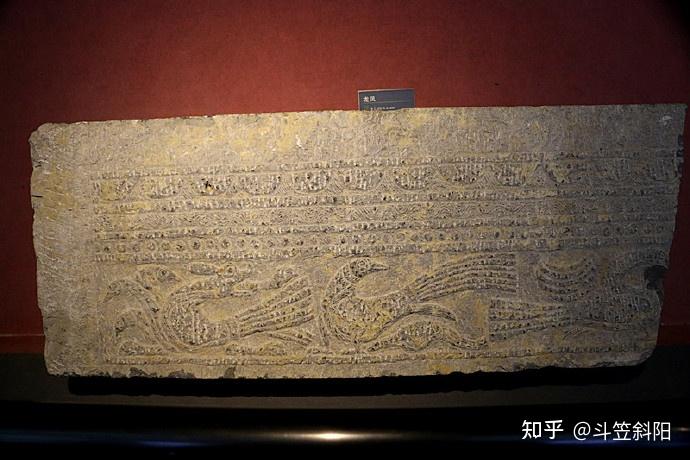 龙凤
知乎 @斗笠斜阳